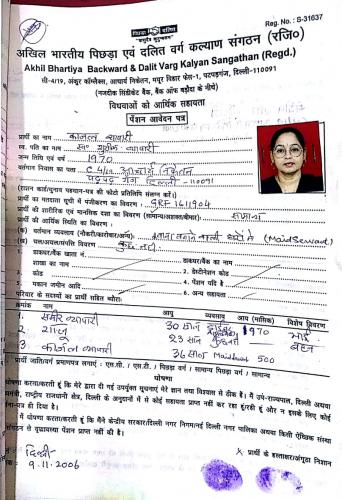 Reg. No. : S-31637
पिछड़ा दलित
अखिल भारतीय पिछड़ा एवं दलित वर्ग कल्याण संगठन (रजि०)
Akhil Bhartiya Backward & Dalit Varg Kalyan Sangathan (Regd.)
सी-4/19, अंकुर कॉम्प्लैक्स, आचार्य निकेतन, मयूर विहार फेस-1, पटपड़गंज, दिल्ली-110091
(नजदीक सिंडीकेट बैंक, बैंक ऑफ बड़ौदा के नीचे)
विधवाओं को आर्थिक सहायता
पेंशन आवेदन पत्र
प्रार्थी का नाम
स्व. पति का नाम स्व०
जन्म तिथि एवं वर्ष 1970
वर्तमान निवास का पता C 4/19 आचार्य निकेतन
दिल्ली -110091
(राशन कार्ड/चुनाव पहचान-पत्र की फोटो प्रतिलिपि संलग्न करें।)
प्रार्थी का मतदाता सूची में पंजीकरण का विवरण : GRF 1611904
प्रार्थी की शारीरिक और मानसिक दशा का विवरण (सामान्य/अशक्त/बीमार) सामान्य
प्रार्थी की आर्थिक स्थिति का विवरण :
(क) वर्तमान व्यवसाय (नौकरी/कारोबार/अन्य) खाना बनाने वाली घरों में (Maid Servant)
(ख) चल/अचल/संपत्ति विवरण कुछ नहीं
डाकघर/बैंक खाता नं.
डाकघर/बैंक का नाम
शाखा का नाम
2. डेस्टीनेशन कोड
कोड
4. पेंशन यदि है
मकान जमीन आदि
6. अन्य सहायता
परिवार के सदस्यों का प्रार्थी सहित ब्यौरा :
नाम आयु व्यवसाय आय (मासिक) विशेष विवरण
1. समीर व्यापारी 30 साल 1970 भाई
2. 23 साल बहन
3. व्यापारी 36 साल Maidservant 500
प्रार्थी जाति/वर्ग प्रमाणपत्र लगाएं : एस.सी. / एस.टी. / पिछड़ा वर्ग / सामान्य पिछड़ा वर्ग / सामान्य
घोषणा
घोषणा करता/करती हूं कि मेरे द्वारा दी गई उपर्युक्त सूचनाएं मेरे ज्ञान तथा विश्वास से ठीक है। मैं उप-राज्यपाल, दिल्ली अथवा
मंत्री, राष्ट्रीय राजधानी क्षेत्र, दिल्ली के अनुदानों में से कोई सहायता प्राप्त नहीं कर रहा हूं/रही हूं और न इसके लिए कोई
मैं घोषणा करता/करती हूं कि मैंने केन्द्रीय सरकार/दिल्ली नगर निगम/नई दिल्ली नगर पालिका अथवा किसी ऐच्छिक संस्था
संगठन से वृद्धावस्था पेंशन प्राप्त नहीं की है।
दिल्ली
9.11.2006
X प्रार्थी के हस्ताक्षर/अंगूठा निशान